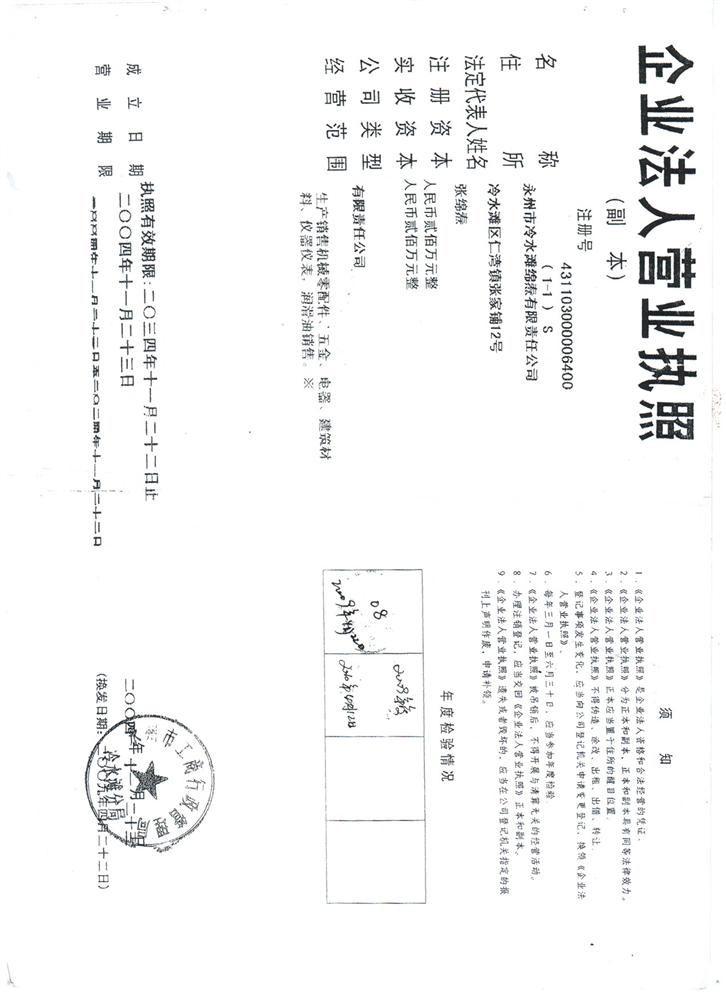 企业法人营业执照
(副 本)
注册号 431103000006400
(1-1) S
名 称 永州市冷水滩绵焘有限责任公司
住 所 冷水滩区仁湾镇张家铺12号
法定代表人姓名 张绵焘
注 册 资 本 人民币贰佰万元整
实 收 资 本 人民币贰佰万元整
公 司 类 型 有限责任公司
经 营 范 围 生产销售机械零配件、五金、电器、建筑材
料、仪器仪表，润滑油销售。※
执照有效期限：二〇三四年十一月二十二日止
成 立 日 期 二〇〇四年十一月二十三日
营 业 期 限 二〇〇四年十一月二十三日至二〇三四年十一月二十二日
须 知
1．《企业法人营业执照》是企业法人资格和合法经营的凭证。
2．《企业法人营业执照》分为正本和副本，正本和副本具有同等法律效力。
3．《企业法人营业执照》正本应当置于住所的醒目位置。
4．《企业法人营业执照》不得伪造、涂改、出租、出借、转让。
5．登记事项发生变化，应当向公司登记机关申请变更登记，换领《企业法
人营业执照》。
6．每年三月一日至六月三十日，应当参加年度检验
7．《企业法人营业执照》被吊销后，不得开展与清算无关的经营活动。
8．办理注销登记，应当交回《企业法人营业执照》正本和副本。
9．《企业法人营业执照》遗失或者毁坏的，应当在公司登记机关指定的报
刊上声明作废，申请补领。
年度检验情况
08
市工商行
冷水滩分局
二〇〇四年十一月二十三日
(换发日期：二〇〇九年四月二十二日)